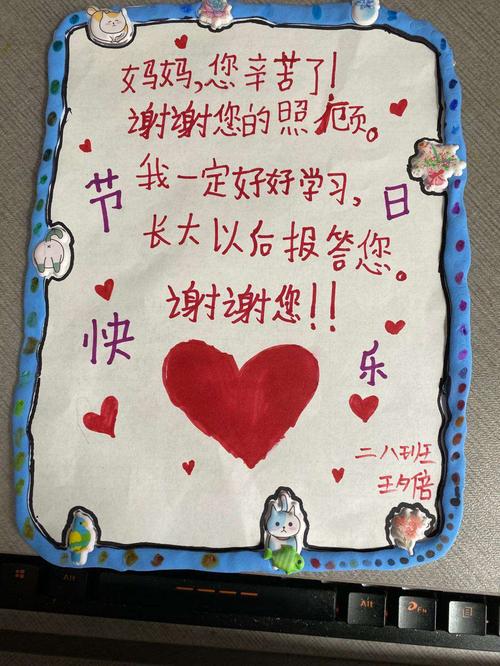 妈妈,您辛苦了!
谢谢您的照顾。
我一定好好学习,
长大以后报答您。
谢谢您!!
节日
快乐
二八班
王夕倍
Alt
Fn
Alt